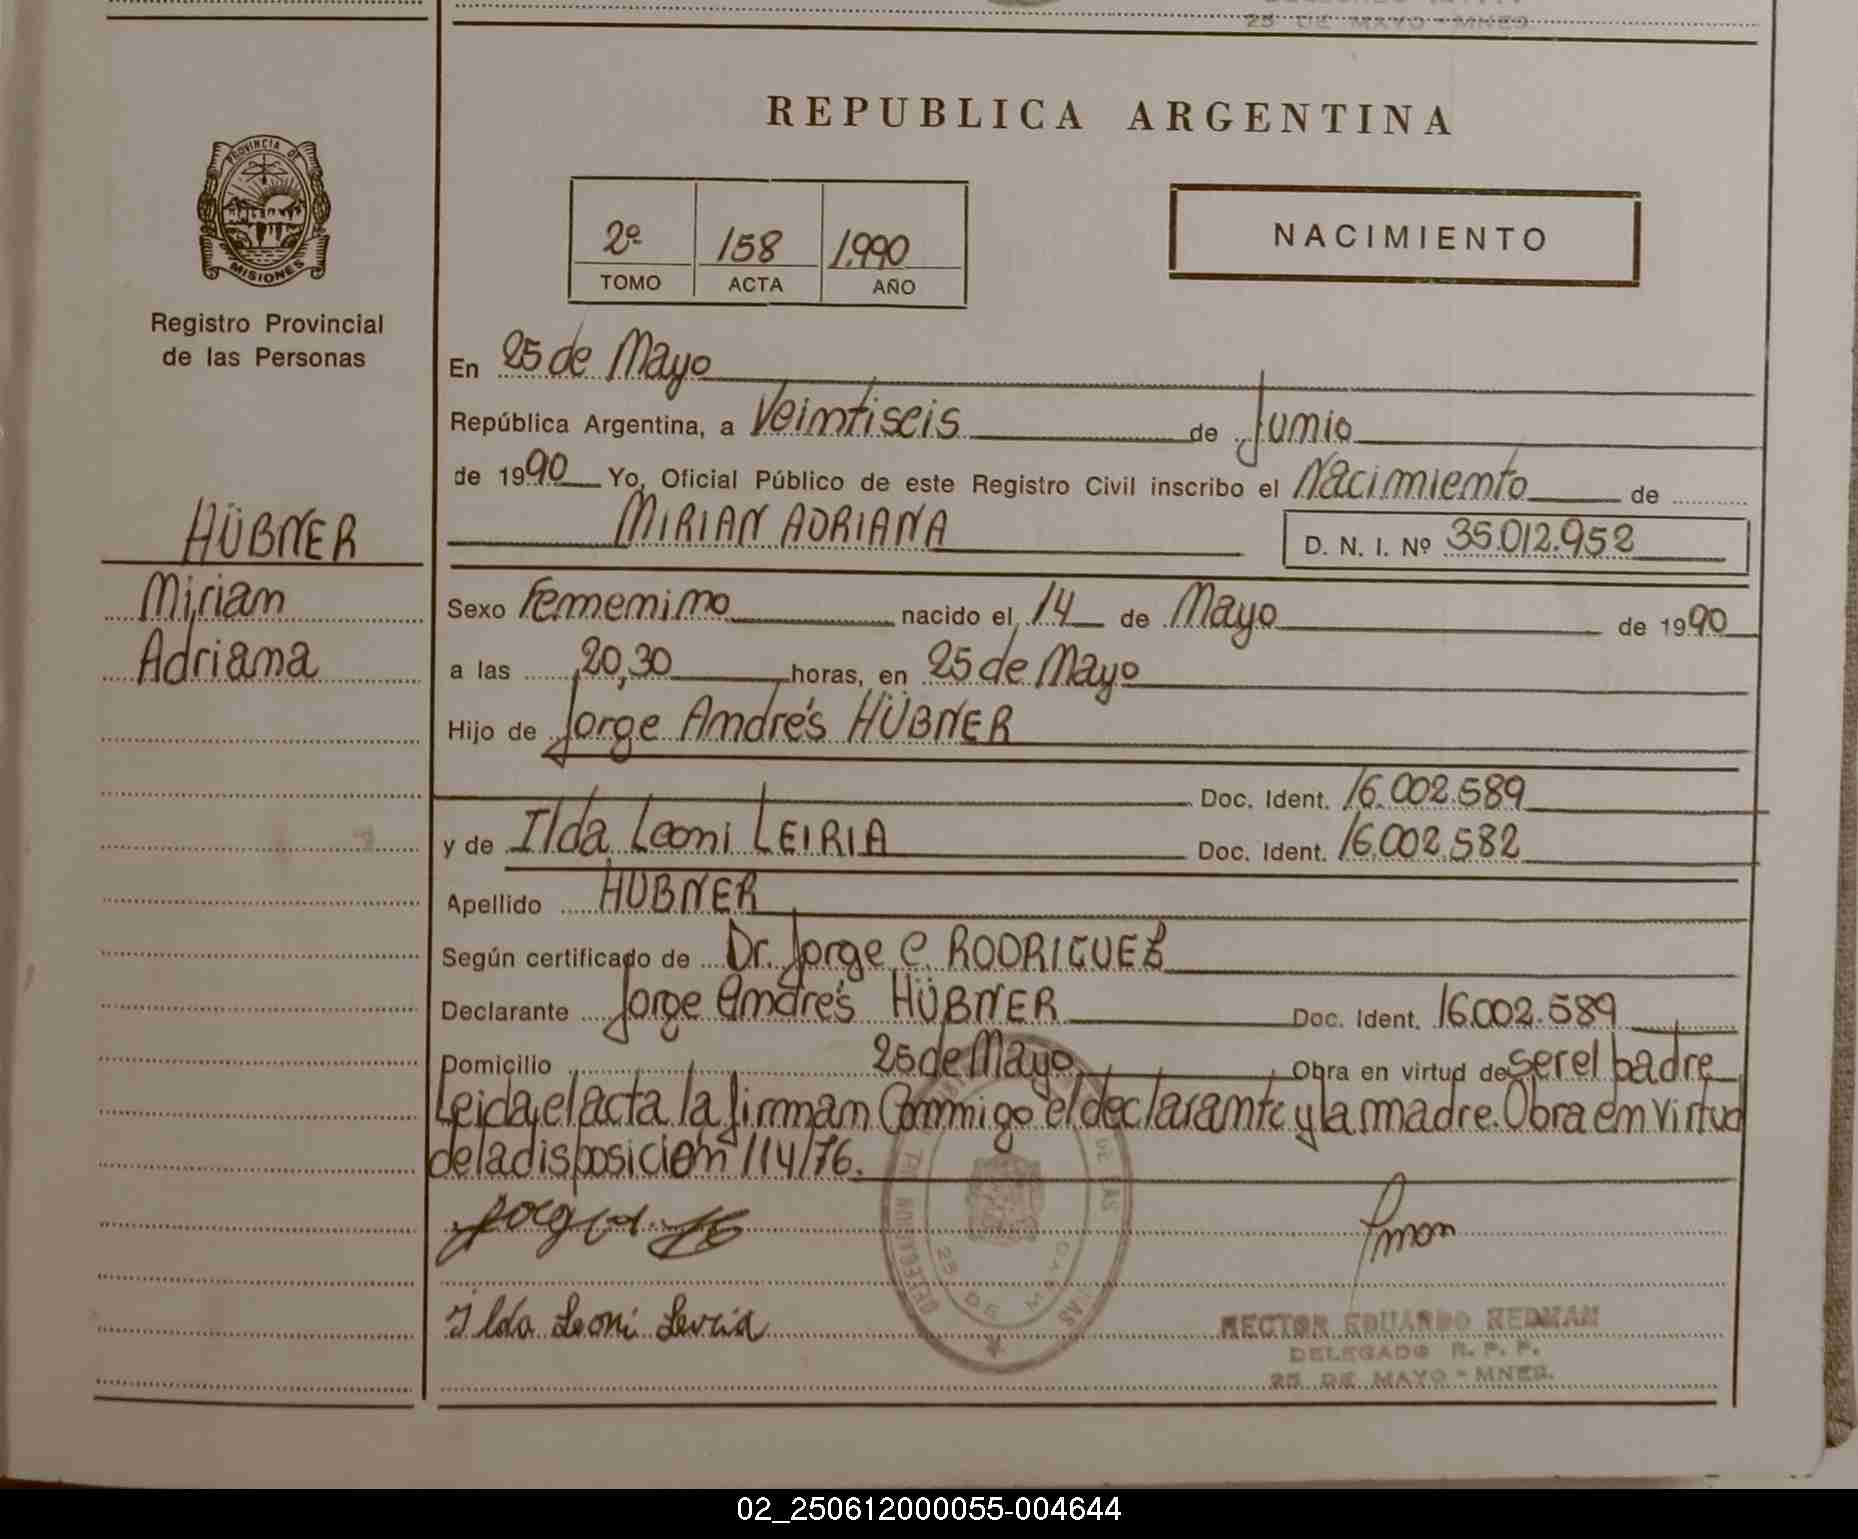 25 DE MAYO - MNES.
REPUBLICA ARGENTINA
PROVINCIA DE
MISIONES
Registro Provincial
de las Personas
2º 158 1.990
TOMO ACTA AÑO
NACIMIENTO
HÜBNER
Mirian
Adriana
En 25 de Mayo
República Argentina, a Veintiseis de Junio
de 1990 Yo, Oficial Público de este Registro Civil inscribo el Nacimiento de
MIRIAN ADRIANA D. N. I. Nº 35.012.952
Sexo Femenino nacido el 14 de Mayo de 1990
a las 20,30 horas, en 25 de Mayo
Hijo de Jorge Andrés HÜBNER
Doc. Ident. 16.002.589
y de Ilda Leoni LEIRIA Doc. Ident. 16.002.582
Apellido HUBNER
Según certificado de Dr. Jorge C. RODRIGUEZ
Declarante Jorge Andrés HÜBNER Doc. Ident. 16.002.589
Domicilio 25 de Mayo Obra en virtud de ser el padre
Leida el acta la firman Conmigo el declarante y la madre. Obra en virtud
de la disposición 114/76.
DE LAS
25 DE MAYO
Ilda Leoni Leiria
HECTOR EDUARDO REDMAN
DELEGADO R. P. P.
25 DE MAYO - MNES.
02_250612000055-004644